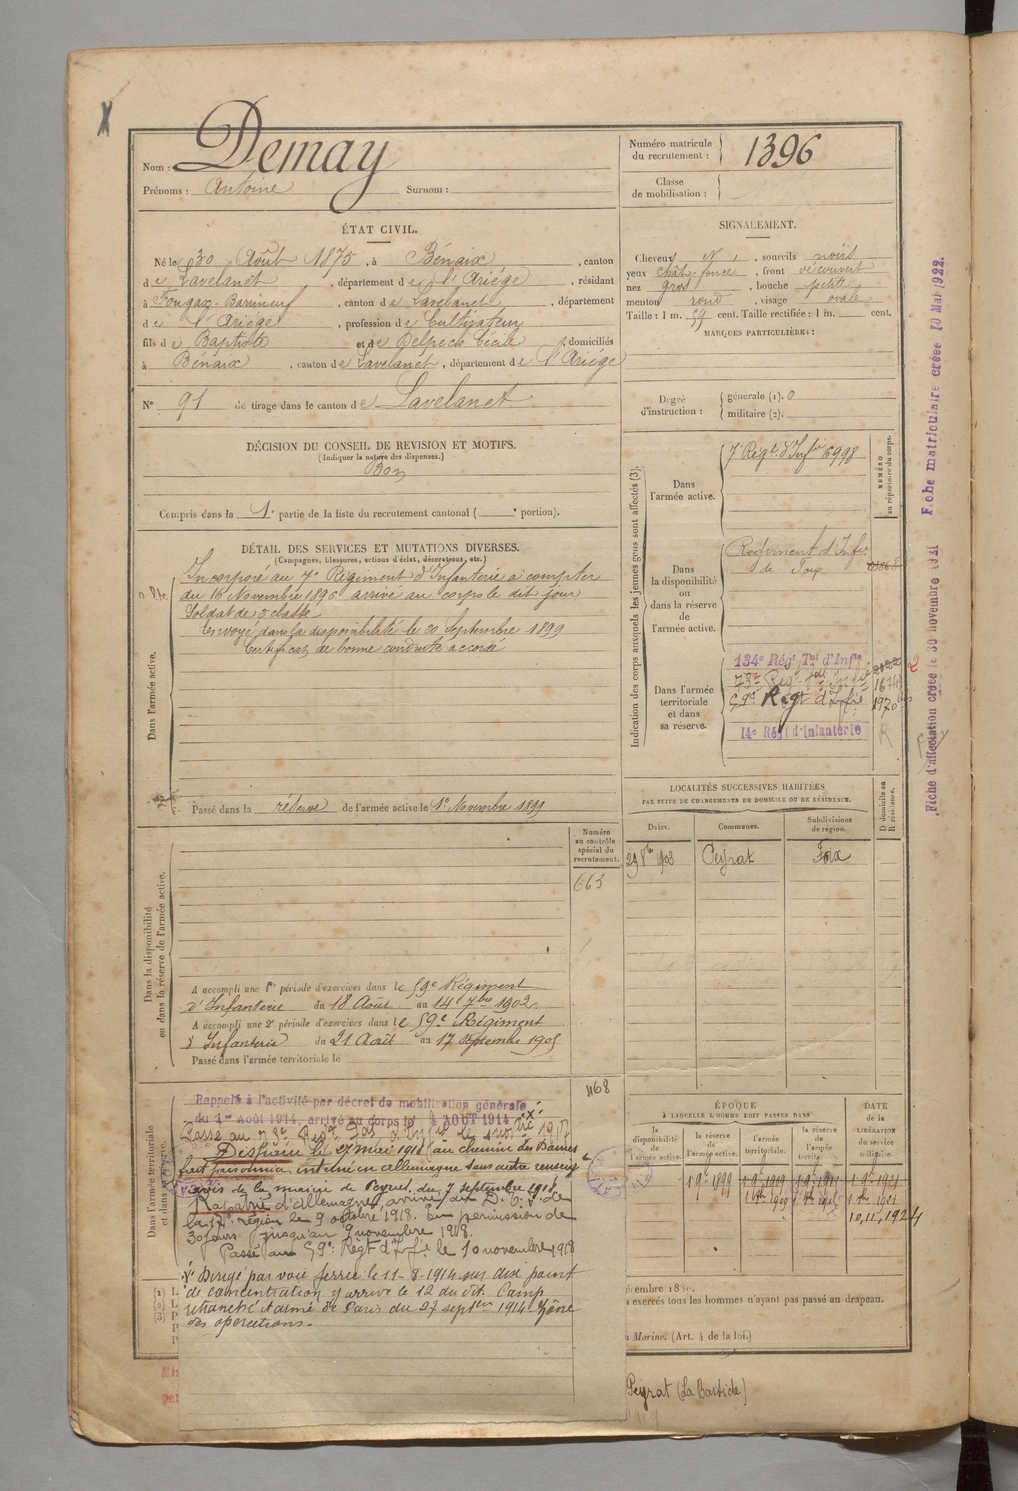 X
Nom : Demay
Prénoms : Antoine Surnom :
Numéro matricule du recrutement : 1396
Classe de mobilisation :
ÉTAT CIVIL.
Né le 30 Août 1875, à Bénaix, canton
de Lavelanet, département de l'Ariége, résidant
à Fougax-Barineuf, canton de Lavelanet, département
de l'Ariège, profession de Cultivateur
fils de Baptiste et de Delpech Cécile, domiciliés
à Bénaix, canton de Lavelanet, département de l'Ariège
N° 91 de tirage dans le canton de Lavelanet
DÉCISION DU CONSEIL DE REVISION ET MOTIFS.
(Indiquer la nature des dispenses.)
Bon
Compris dans la 1e partie de la liste du recrutement cantonal ( e portion).
SIGNALEMENT.
Cheveux , sourcils noirs
yeux chât-foncé, front découvert
nez gros, bouche petite
menton rond, visage ovale
Taille : 1 m. 59 cent. Taille rectifiée : 1 m. cent.
MARQUES PARTICULIÈRES :
Degré d'instruction : générale (1). 0
militaire (2).
DÉTAIL DES SERVICES ET MUTATIONS DIVERSES.
(Campagnes, blessures, actions d'éclat, décorations, etc.)
Dans l'armée active.
Incorporé au 7e Régiment d'Infanterie à compter
du 16 Novembre 1896 arrivé au corps le dit jour
Soldat de 2e classe
Envoyé dans la disponibilité le 20 Septembre 1899
Certificat de bonne conduite accordé
Passé dans la réserve de l'armée active le 1er Novembre 1899
Indication des corps auxquels les jeunes gens sont affectés (3).
NUMÉRO au répertoire du corps.
Dans l'armée active.
7e Régt d'Infie 6998
Dans la disponibilité ou dans la réserve de l'armée active.
Régiment d'Infie
de Foix
Dans l'armée territoriale et dans sa réserve.
134e Régt Tal d'Infie
59e Régt d'Infie 1970
14e Régt d'Infanterie R
Fiche d'affectation créée le 30 novembre 1921 Fiche matriculaire créée 10 Mai 1922.
LOCALITÉS SUCCESSIVES HABITÉES
PAR SUITE DE CHANGEMENTS DE DOMICILE OU DE RÉSIDENCE.
Dates. Communes. Subdivisions de région. D domicile ou R résidence.
29 8bre 1903 Peyrat Foix
Dans la disponibilité ou dans la réserve de l'armée active.
Numéro au contrôle spécial du recrutement.
663
A accompli une 1re période d'exercices dans le 59e Régiment
d'Infanterie du 18 Août au 14 7bre 1902
A accompli une 2e période d'exercices dans le 59e Régiment
d'Infanterie du 21 Août au 17 Septembre 1905
Passé dans l'armée territoriale le
Dans l'armée territoriale et dans sa réserve.
1168
Rappelé à l'activité par décret de mobilisation générale
du 1er Août 1914, arrivé au corps le 4 AOUT 1914
Disparu le 27 mai 1918 au chemin des Dames
fait prisonnier interné en allemagne sans autre renseigt
avis de la mairie de Peyrat du 7 septembre 1918
Rapatrié d'Allemagne, arrivé au D. de
la 17e région le 9 octobre 1918. En permission de
30 jours jusqu'au 9 novembre 1918.
Passé au 59e Régt d'Infie le 10 novembre 1918
Dirigé par voie ferrée le 11-8-1914 sur dix point
de concentration y arrive le 12 du dit. Camp
retranché et armé de Paris du 27 septbre 1914. Zône
des opérations.
ÉPOQUE
À LAQUELLE L'HOMME DOIT PASSER DANS
la disponibilité de l'armée active. la réserve de l'armée active. l'armée territoriale. la réserve de l'armée territoriale.
DATE de la LIBÉRATION du service militaire.
10, 11, 1924
(1)
(2)
(3)
exercés tous les hommes n'ayant pas passé au drapeau.
Marine. (Art. 4 de la loi.)
Peyrat (La Bastide)